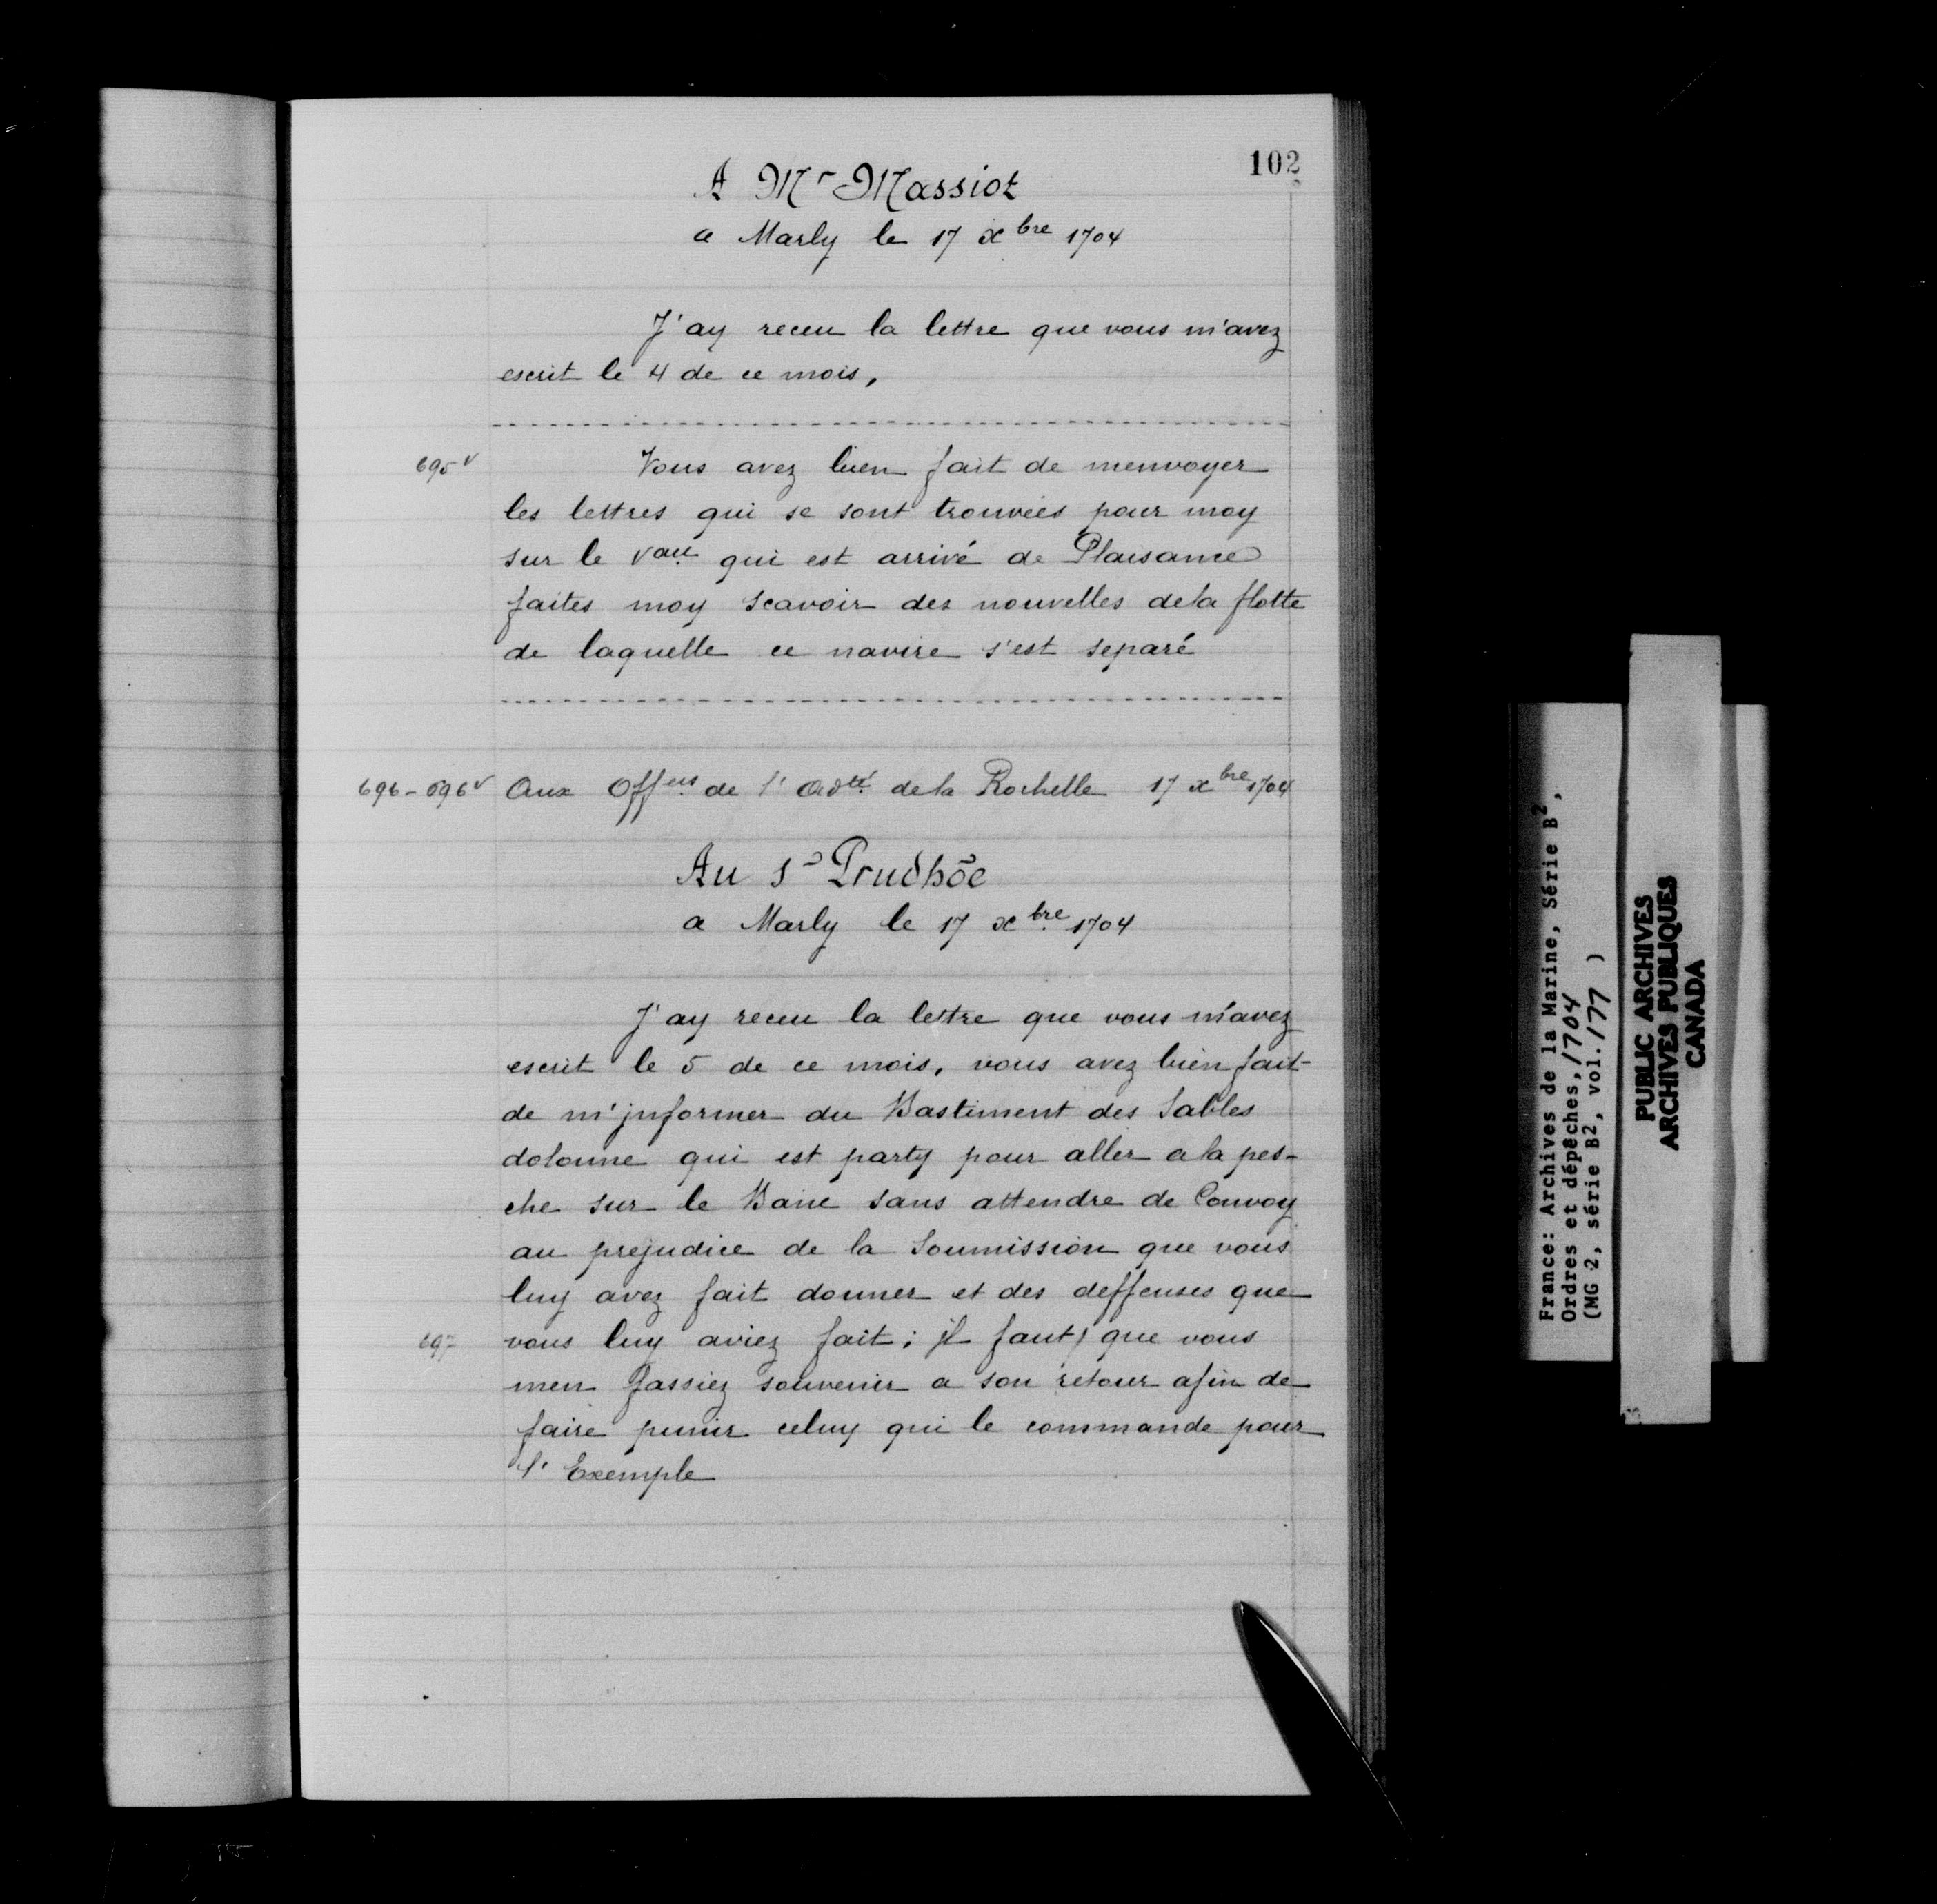 102
A Mr Massiot
a Marly le 17 xbre 1704
J'ay receu la lettre que vous m'avez
escrit le 4 de ce mois,
695v Vous avez bien fait de menvoyer
les lettres qui se sont trouvées pour moy
sur le vau. qui est arrivé de Plaisance
faites moy scavoir des nouvelles dela flotte
de laquelle ce navire s'est separé
696-696v Aux Offers de l'adté dela Rochelle 17 xbre 1704
Au Sr Prudhōe
a Marly le 17 xbre. 1704
J'ay receu la lettre que vous m'avez
escrit le 5 de ce mois, vous avez bien fait
de m'jnformer du Bastiment des Sables
dolonne qui est party pour aller a la pes-
che sur le Banc sans attendre de Convoy
au prejudice de la Soumission que vous
luy avez fait donner et des deffenses que
697 vous luy aviez fait; jl faut que vous
men fassiez souvenir a son retour afin de
faire punir celuy qui le commande pour
l'Exemple
France: Archives de la Marine, Série B2,
Ordres et dépêches, 1704
(MG 2, série B2, vol. 177 )
PUBLIC ARCHIVES
ARCHIVES PUBLIQUES
CANADA